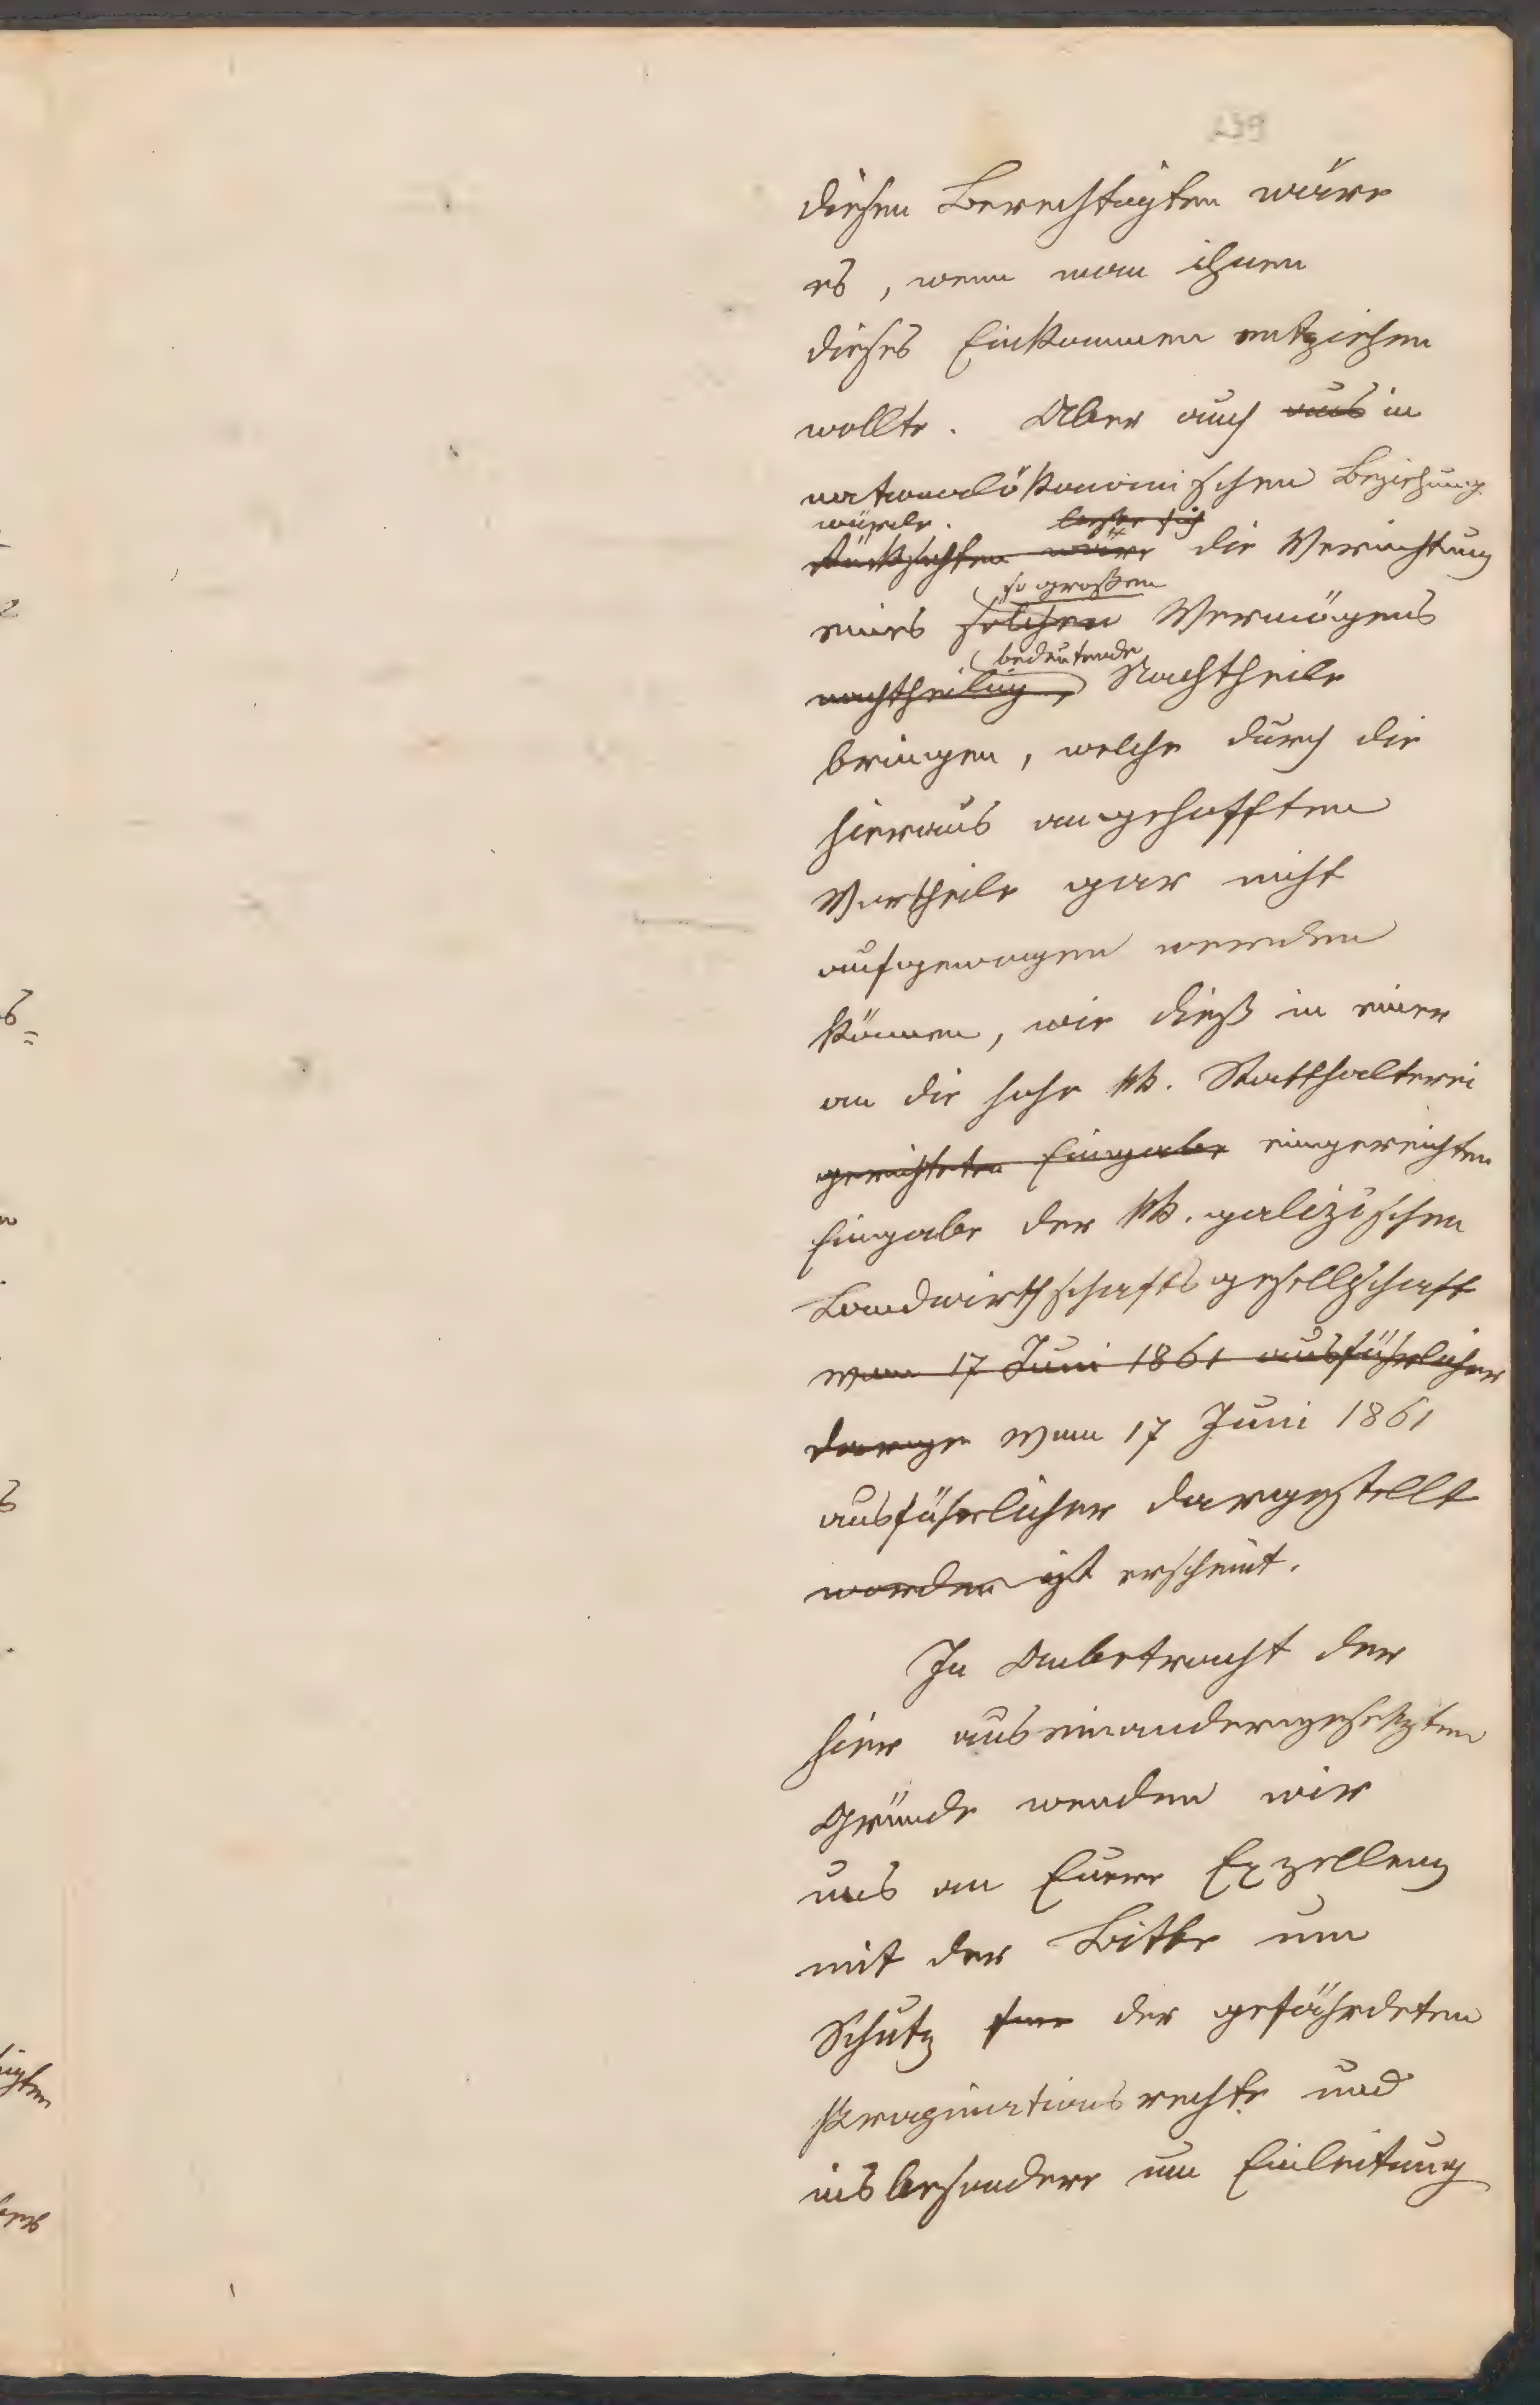 239
diesen Berechtigten wäre
es, wenn man ihnen
dieses Einkommen entziehen
wollte. Aber auch aus in
nationalökonomischen Beziehung
würde. ließe sich
Rücksichten wäre die Vernichtung
so großen
eines solchen Vermögens
bedeutende
nachtheilig, Nachtheile
bringen, welche durch die
hieraus angehofften
Vortheile gar nicht
aufgewogen werden
können, wie dieß in einer
an die hohe kk. Statthalterei
gerichteten Eingabe eingereichten
Eingabe der kk. galizischen
Landwirthschaftsgesellschaft
vom 17 Juni 1861 ausführlicher
darge vom 17 Juni 1861
ausführlicher dargestellt
worden ist erscheint.
In Anbetracht der
hier auseinandergesetzten
Gründe wenden wir
uns an Euere Exzellenz
mit der Bitte um
Schutz der gefährdeten
Propinationsrechte und
insbesondere um Einleitung